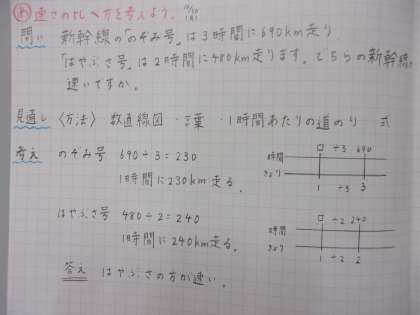 め 速さの比べ方を考えよう。
問い 新幹線の「のぞみ号」は3時間に690km走り
「はやぶさ号」は2時間に480km走ります。どちらの新幹線
速いですか。
見通し 〈方法〉 数直線図・言葉・1時間あたりの道のり 式
考え のぞみ号 690÷3=230
1時間に230km走る。
時間 きょり
□ ÷3 690
1 ÷3 3
はやぶさ号 480÷2=240
1時間に240km走る。
時間 きょり
□ ÷2 240
1 ÷2 2
答え はやぶさの方が速い。